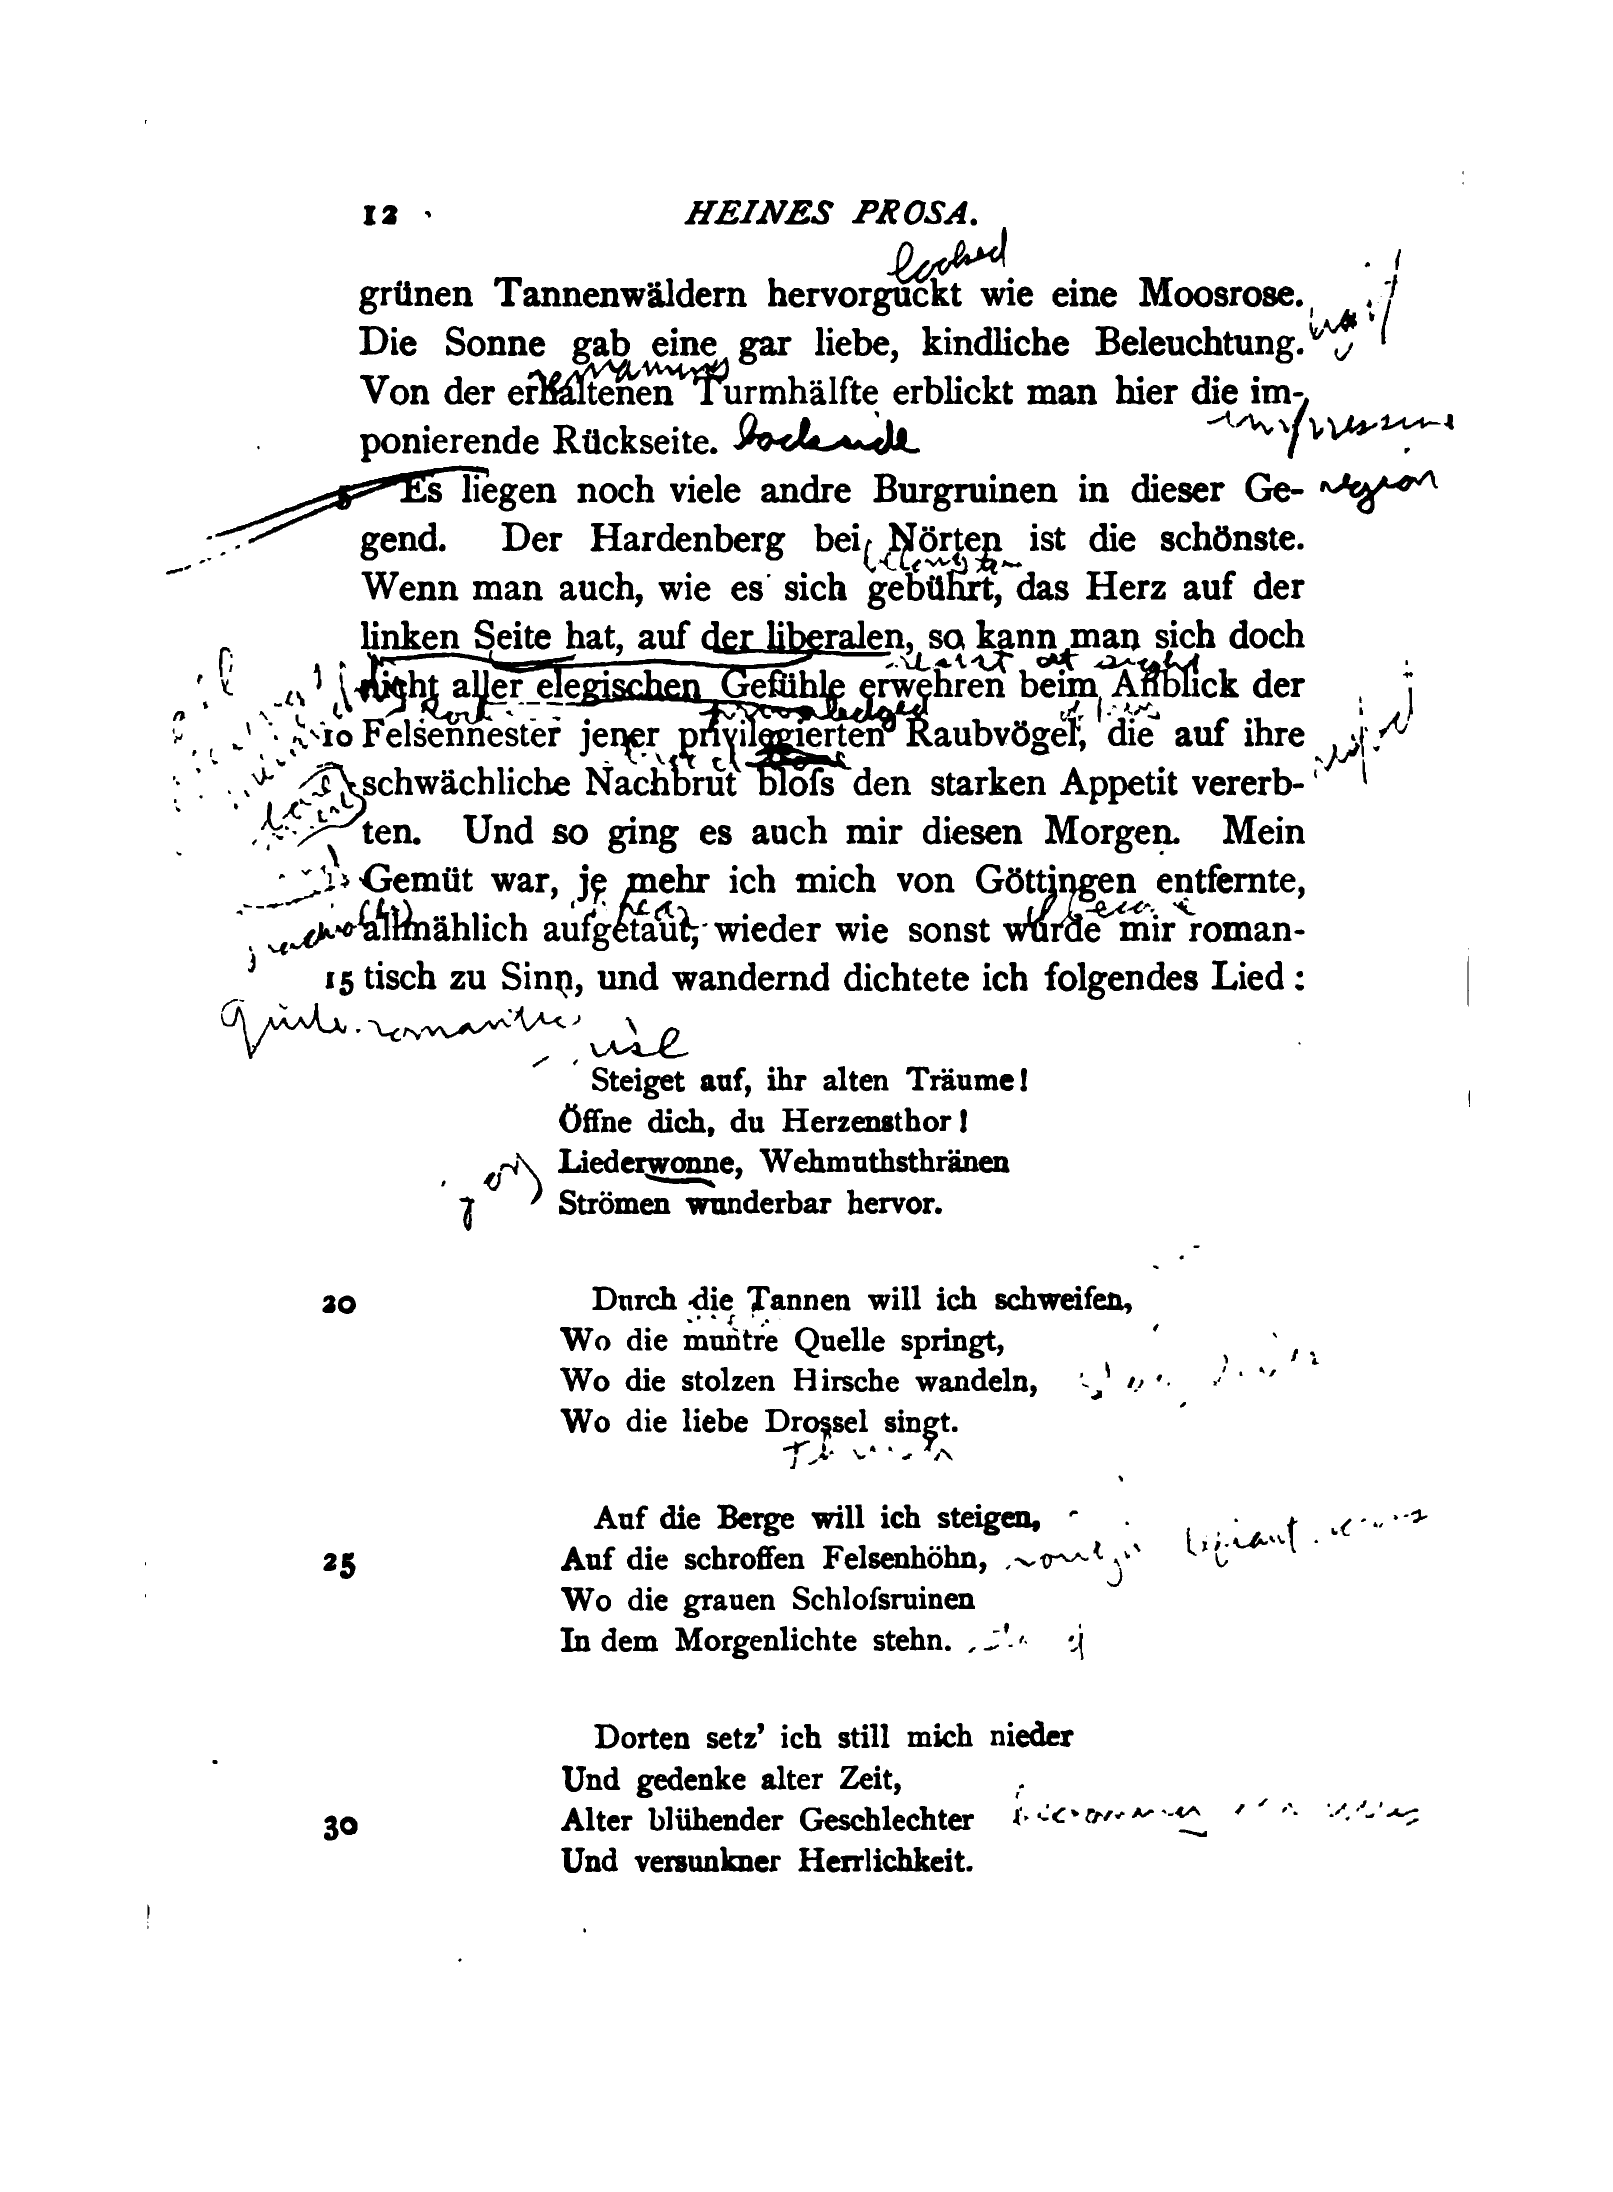 12 HEINES PROSA.
looked
grünen Tannenwäldern hervorguckt wie eine Moosrose.
Die Sonne gab eine gar liebe, kindliche Beleuchtung.
remaining
Von der erhaltenen Turmhälfte erblickt man hier die im-
impressive
ponierende Rückseite. backside
5 Es liegen noch viele andre Burgruinen in dieser Ge- region
gend. Der Hardenberg bei Nörten ist die schönste.
Wenn man auch, wie es sich gebührt, das Herz auf der
linken Seite hat, auf der liberalen, so kann man sich doch
resist at sight
nicht aller elegischen Gefühle erwehren beim Anblick der
priviledged
10 Felsennester jener privilegierten Raubvögel, die auf ihre
schwächliche Nachbrut bloſs den starken Appetit vererb-
ten. Und so ging es auch mir diesen Morgen. Mein
Gemüt war, je mehr ich mich von Göttingen entfernte,
allmählich aufgetaut, wieder wie sonst wurde mir roman-
15 tisch zu Sinn, und wandernd dichtete ich folgendes Lied:
Quite romantic
Steiget auf, ihr alten Träume!
Öffne dich, du Herzensthor!
joy Liederwonne, Wehmuthsthränen
Strömen wunderbar hervor.
20 Durch die Tannen will ich schweifen,
Wo die muntre Quelle springt,
Wo die stolzen Hirsche wandeln,
Wo die liebe Drossel singt.
Auf die Berge will ich steigen,
25 Auf die schroffen Felsenhöhn,
Wo die grauen Schloſsruinen
In dem Morgenlichte stehn.
Dorten setz' ich still mich nieder
Und gedenke alter Zeit,
30 Alter blühender Geschlechter
Und versunkner Herrlichkeit.